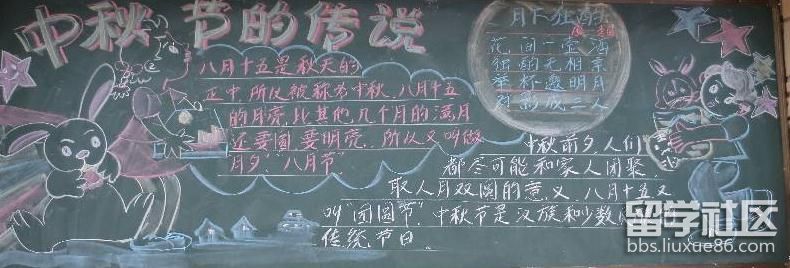 中秋节的传说
八月十五是秋天的
正中,所以被称为中秋,八月十五
的月亮,比其他几个月的满月
还要圆,要明亮,所以又叫做
月夕,“八月节”
月下独酌
花间一壶酒
独酌无相亲
举杯邀明月
对影成三人
中秋前夕人们
都尽可能和家人团聚,
取人月双圆的意义,八月十五又
叫“团圆节”,中秋节是汉族和少数
传统节日。
留学社区
bbs.liuxue86.com